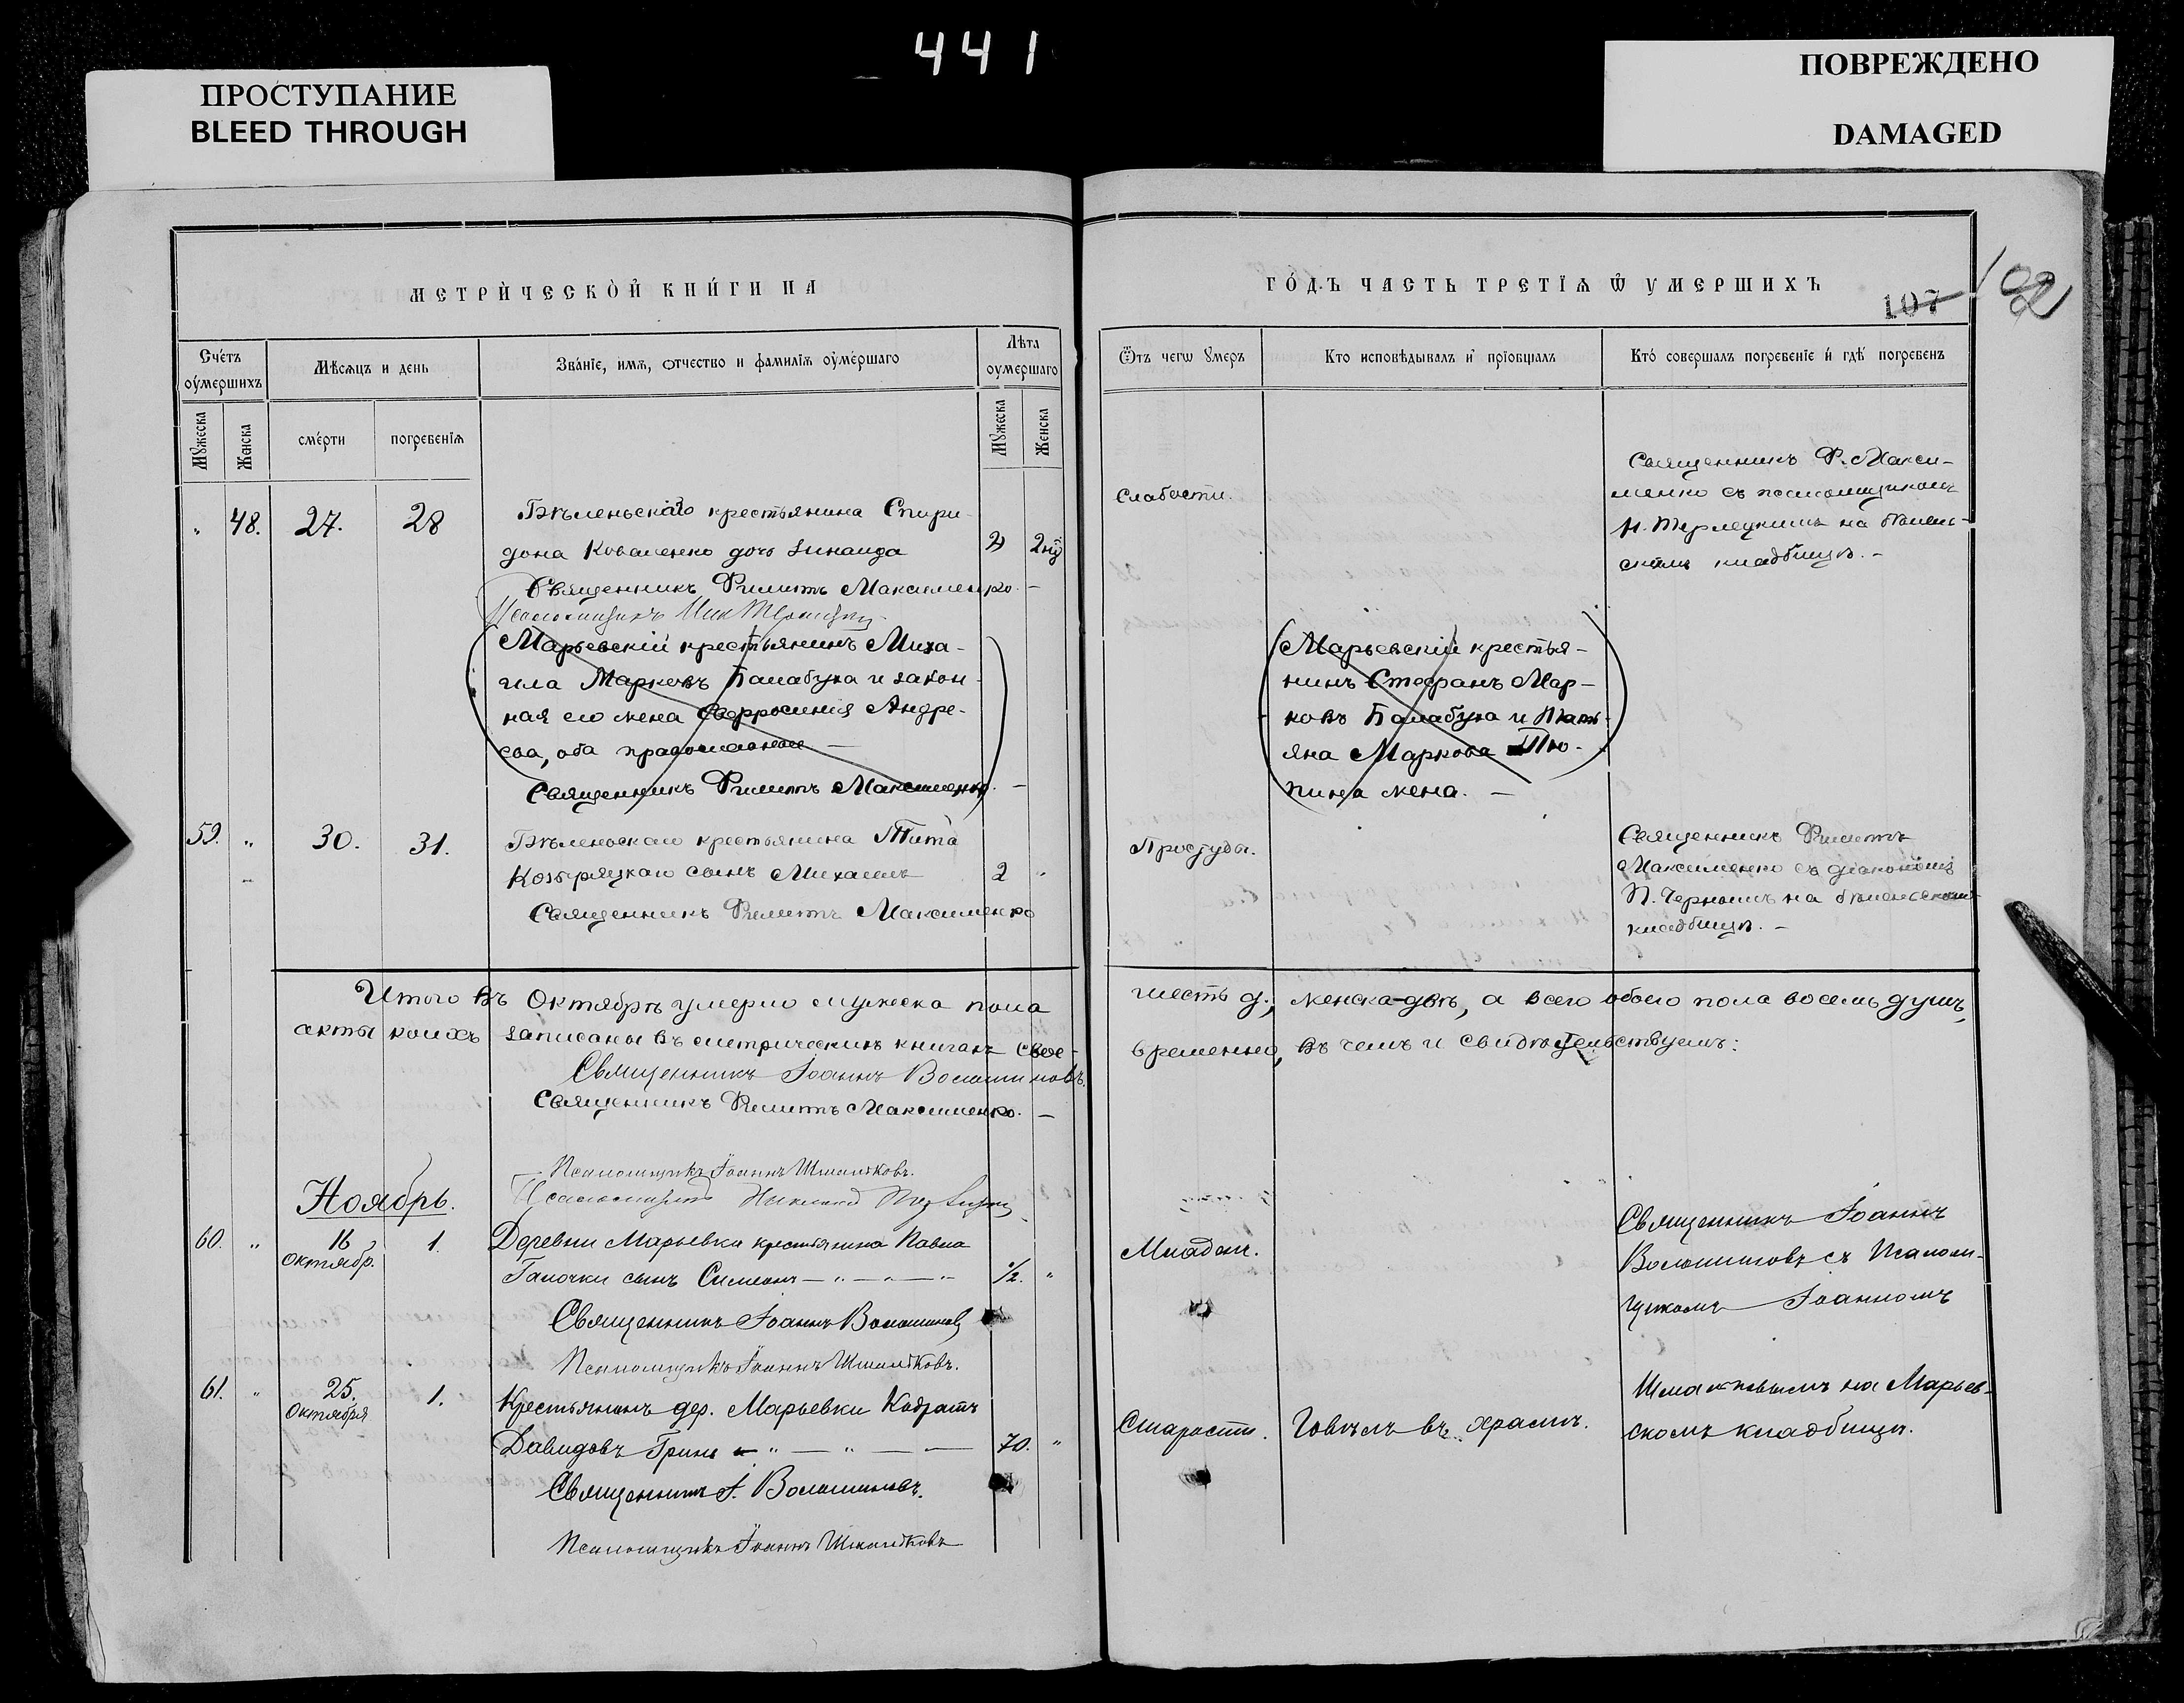 441
ПРОСТУПАНИЕ
BLEED THROUGH
ПОВРЕЖДЕНО
DAMAGED
МЕТРИ́ЧЕСКО́Й КНИ́ГИ НА
ГО́ДЪ ЧАСТЬ ТРЕТІѦ Ѿ УМЕРШИХЪ
107
102
Счётъ оу́мершихъ
Мѣсяцъ и день
Зва́ніе, имѧ, отчество и фамилїѧ оу́ме́ршаго
Лѣта оуме́ршаго
Ѿтъ чегѡ Ꙋмеръ
Кто исповѣдывалъ и прїобщалъ
Кто́ совершалъ погребенїе и́ гдѣ́ погребенъ
Мꙋжеска
Женска
сме́рти
погребенїѧ
Мꙋжеска
Женска
„ 48. 27. 28
Бѣленьскаго крестьянина Спири-
дона Коваленко дочь Зинаида
2
Священникъ Филиппъ Максименко. —
Псаломщикъ
Слабости.
Священникъ Ф. Макси-
менко съ псаломщикомъ
Н. Терлецкимъ на бѣлень-
скомъ кладбищѣ. —
Марьевскій крестьянинъ Миха-
ила Марковъ Балабуха и закон-
ная его жена Евфросинія Андре-
ева, оба православные —
Священникъ Филиппъ Максименко. —
Марьевскій крестья-
нинъ Стефанъ Мар-
ковъ Балабуха и Тать-
яна Маркова
жена. —
59. „ 30. 31.
Бѣленьскаго крестьянина Тита
Козыряцкаго сынъ Михаилъ
2 „
Священникъ Филиппъ Максименко
Простуды.
Священникъ Филиппъ
Максименко съ діакономъ
П. Чернымъ на бѣленьскомъ
кладбищѣ. —
Итого въ Октябрѣ умерло мужеска пола шесть д., женска-двѣ, а всего обоего пола восемь душъ,
акты коихъ записаны въ метрическихъ книгахъ свое-временно, въ чемъ и свидѣтельствуемъ:
Священникъ Іоаннъ Волошиновъ.
Священникъ Филиппъ Максименко. —
Псаломщикъ Іоаннъ Шмалтковъ.
Псаломщикъ
Ноябрь.
60. „ 16 Октябр. 1.
Деревни Марьевки крестьянина Павла
Галочки сынъ Симеонъ — „ — „ — „
1/2. „
Священникъ Іоаннъ Волошиновъ
Псаломщикъ Іоаннъ Шмалтковъ.
Младен.
Священникъ Іоаннъ
Волошиновъ съ Псалом-
щикомъ Іоанномъ
61. „ 25. Октября 1.
Крестьянинъ дер. Марьевки Кодратъ
Давидовъ Гринь — „ — „ — —
70. „
Священникъ І. Волошиновъ.
Псаломщикъ Іоаннъ Шмалтковъ
Старости.
Говѣлъ въ храмѣ.
Шмалтковымъ на Марьев-
скомъ кладбищѣ.